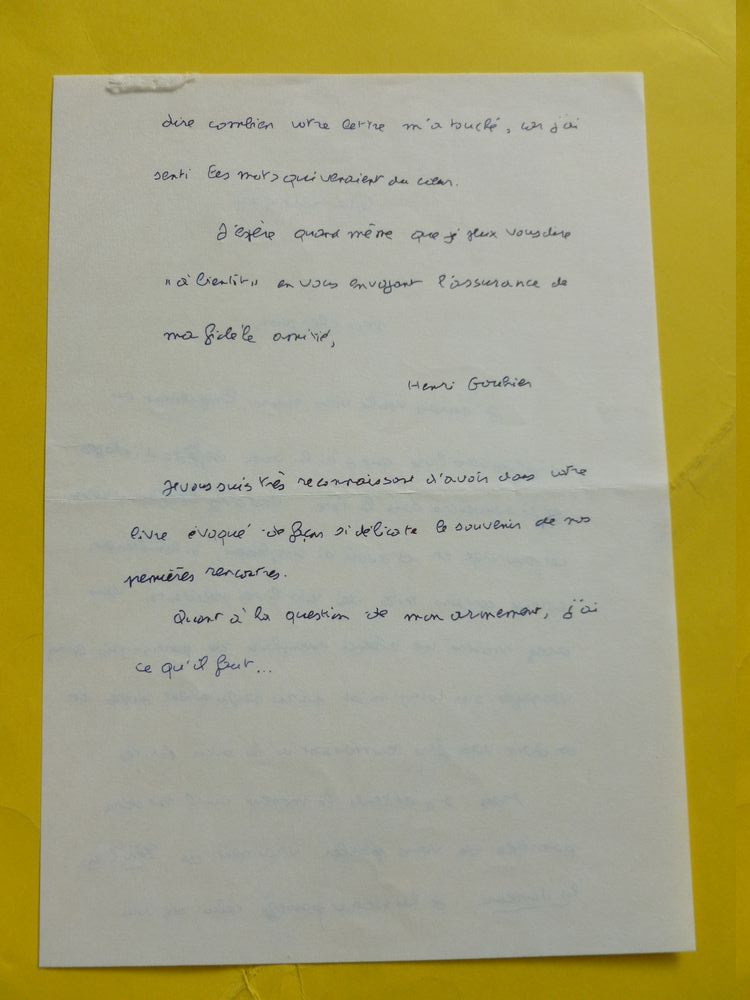 dire combien votre lettre m'a touché, car j'ai
senti les mots qui venaient du cœur.
J'espère quand même que je peux vous dire
"à bientôt" en vous envoyant l'assurance de
ma fidèle amitié,
Henri Gouhier
Je vous suis très reconnaissant d'avoir dans votre
livre évoqué de façon si délicate le souvenir de nos
premières rencontres.
Quant à la question de mon armement, j'ai
ce qu'il faut...